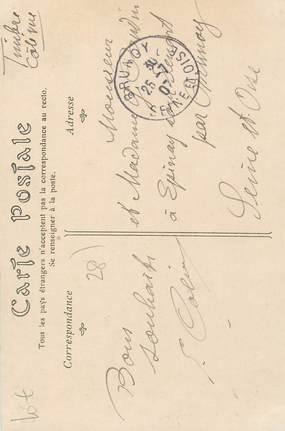 Timbre
Carte Postale
Tous les pays étrangers n'acceptent pas la correspondance au recto.
Se renseigner à la poste.
Correspondance
Adresse
28)
Bons
souhaits
Monsieur
et Madame
à Epinay
par Brunoy
Seine et Oise
BRUNOY
lot